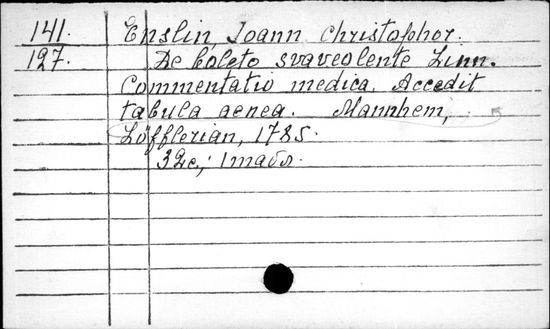 141. Enslin, Joann Christophor.
127. De boleto svaveolente Linn.
Commentatio medica. Accedit
tabula aenea. Mannhem,
Löfflerian, 1785.
32c.; 1